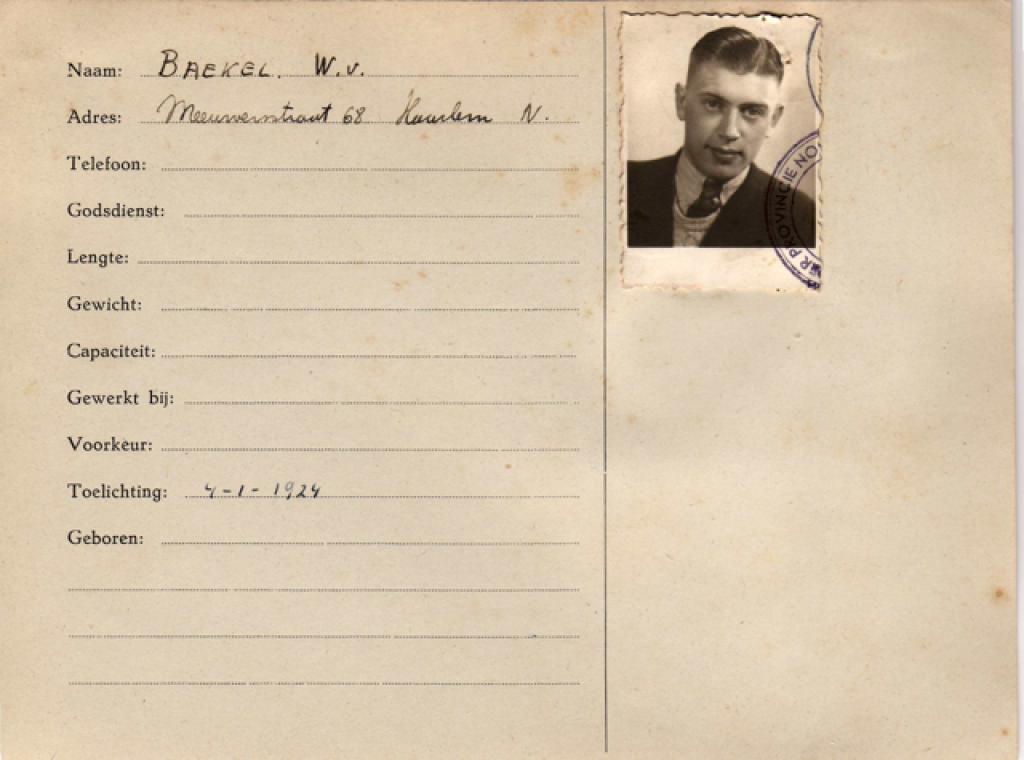 Naam: BAEKEL. W.v.
Adres: Meeuwenstraat 68 Haarlem N.
Telefoon:
Godsdienst:
Lengte:
Gewicht:
Capaciteit:
Gewerkt bij:
Voorkeur:
Toelichting: 4-1-1924
Geboren:
PROVINCIE NO